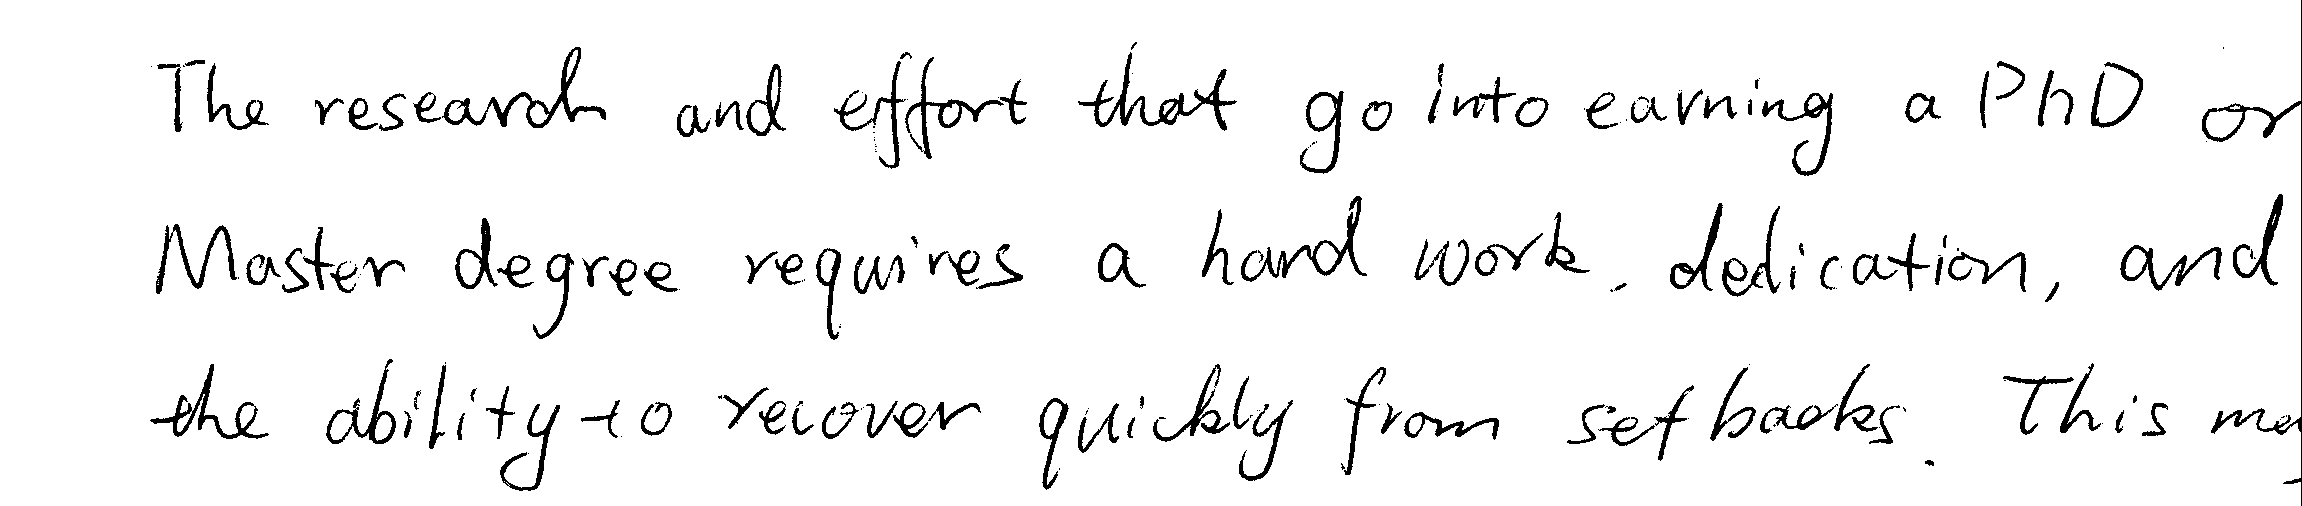 The research and effort that go into earning a PhD or
Master degree requires a hard work, dedication, and
the ability to recover quickly from setbacks. This